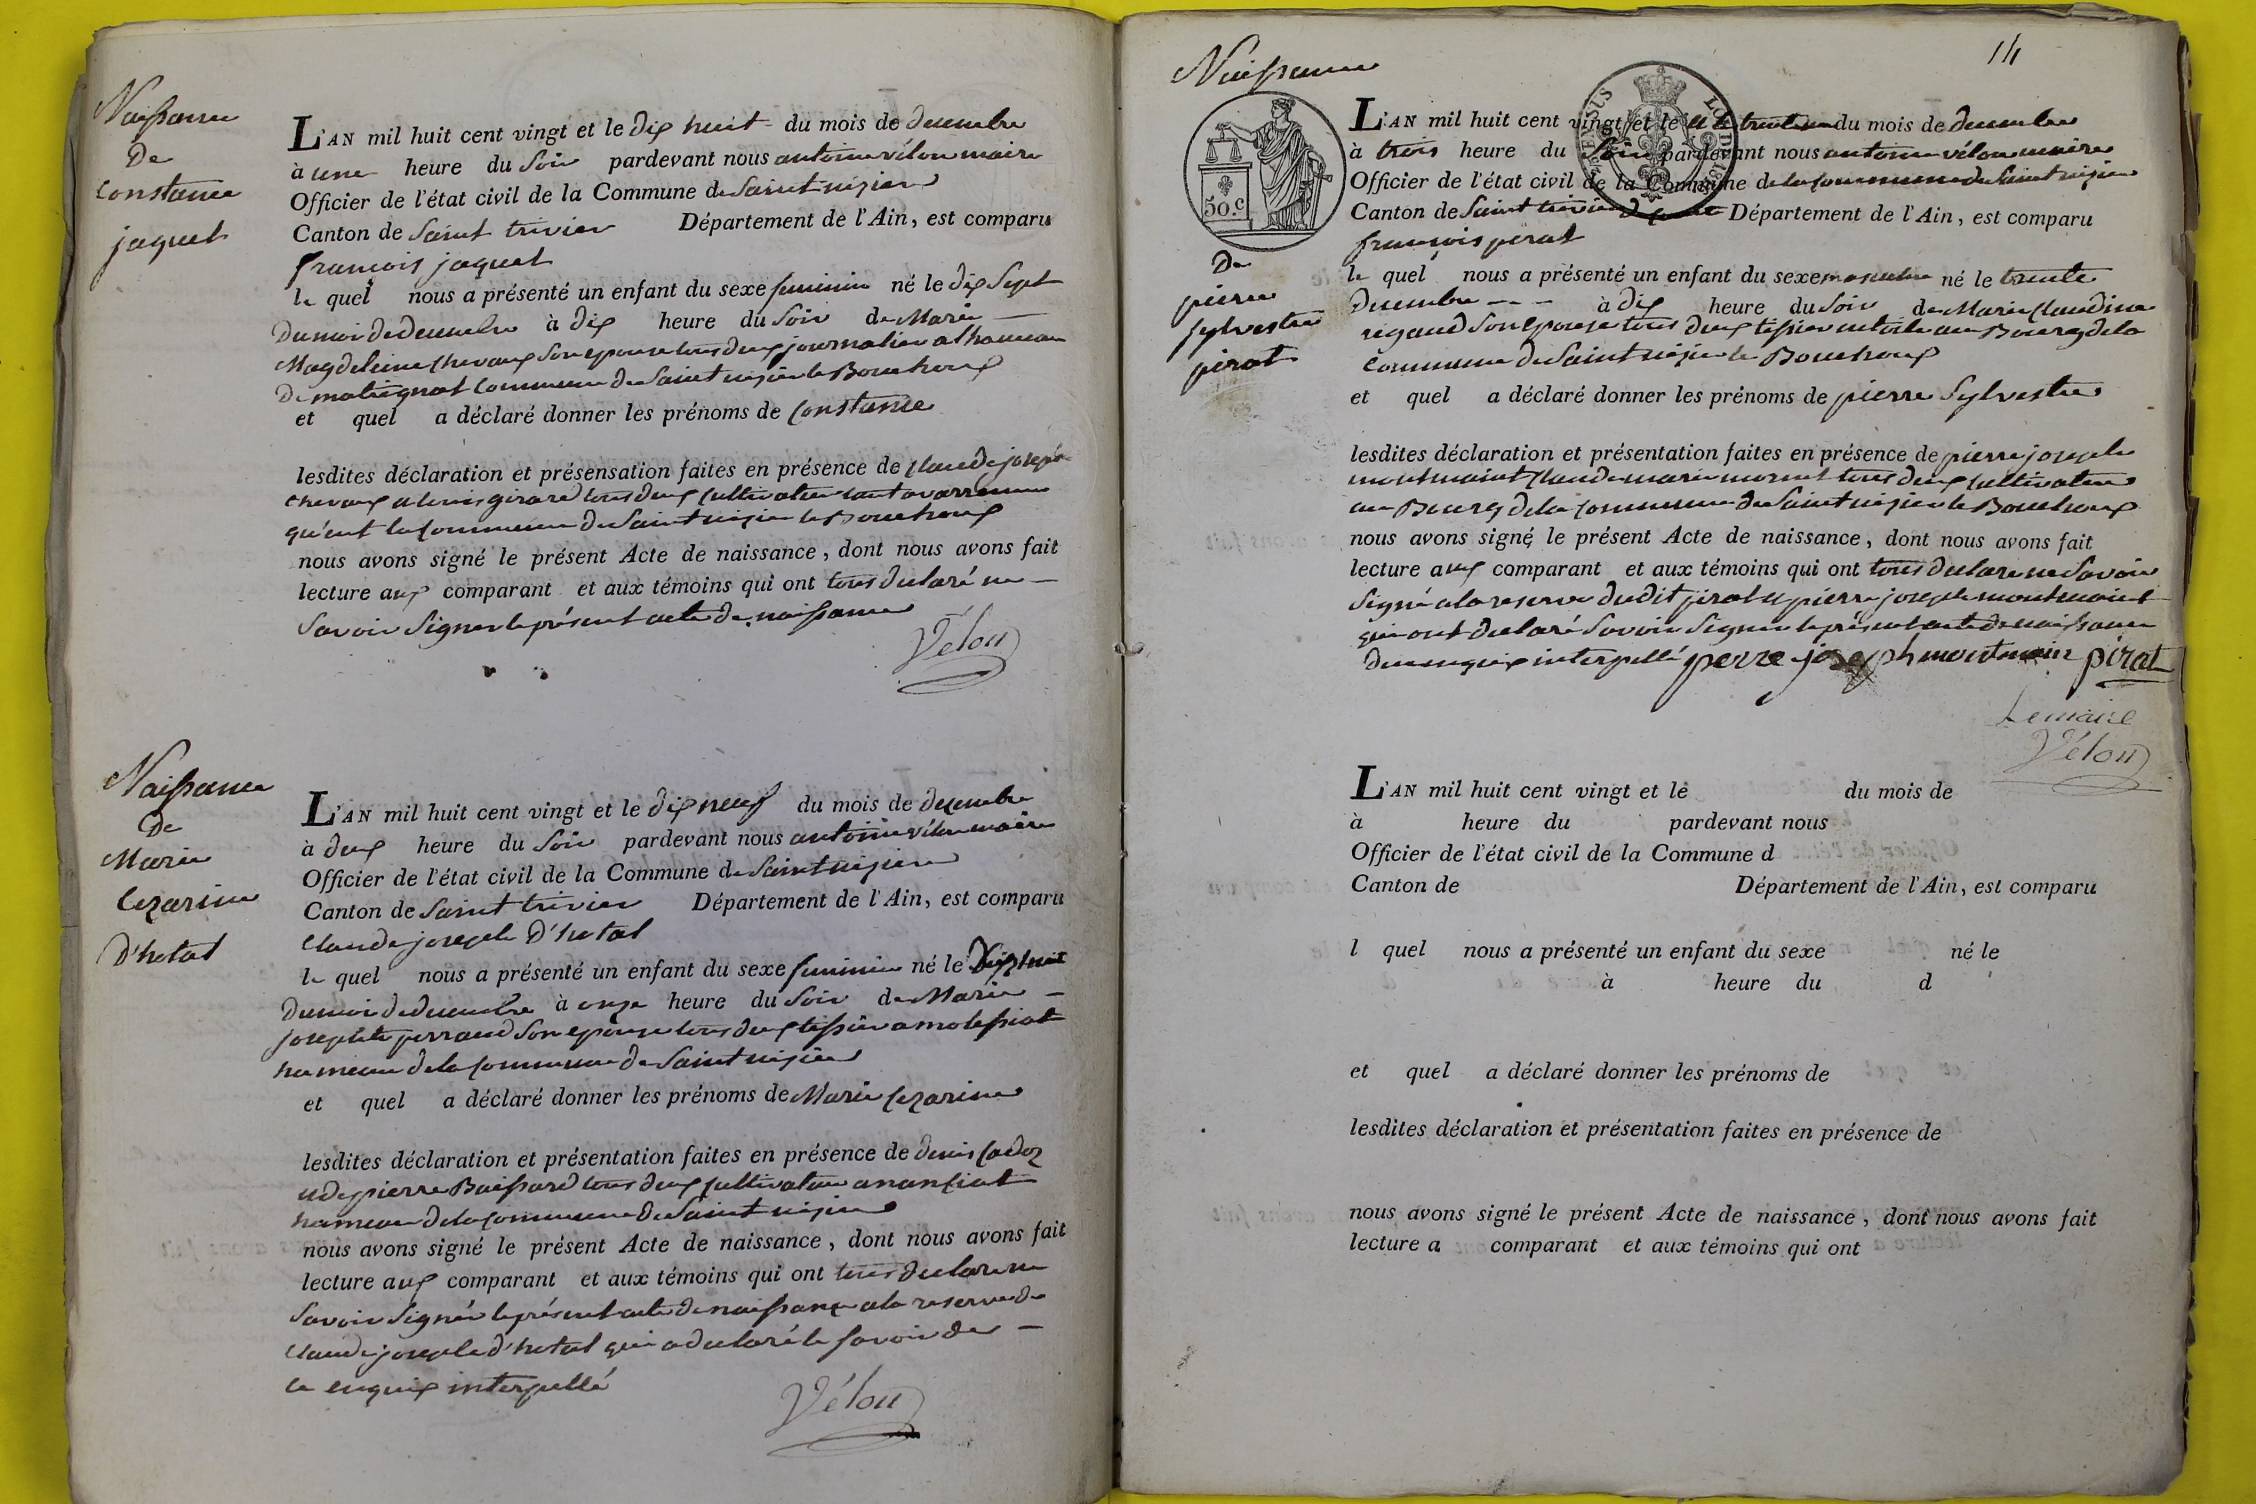 Naissance
De
Constance
jaquet
L'AN mil huit cent vingt et le dix huit du mois de decembre
à une heure du Soir pardevant nous antoine vélon maire
Officier de l'état civil de la Commune de Saint nizier
Canton de Saint trivier Département de l'Ain, est comparu
francois jaquet
le quel nous a présenté un enfant du sexe feminin né le dix Sept
du moi de decembre à dix heure du Soir de Marie
Magdeleine chevaux Son epouse tous deux journalier a lhameau
De matignat commune de Saint nizier le Bouchoux
et quel a déclaré donner les prénoms de Constance
lesdites déclaration et présensation faites en présence de claude joseph
chevaux et louis girard tous deux cultivateur
qu'ent la commune de Saint nizier le Bouchoux
nous avons signé le présent Acte de naissance, dont nous avons fait
lecture aux comparant et aux témoins qui ont tous declaré ne
Savoir Signer le présent acte de naissance
Vélon
Naissance
De
Marie
Cezarine
D'hotal
L'AN mil huit cent vingt et le dix neuf du mois de decembre
à deux heure du Soir pardevant nous antoine vélon maire
Officier de l'état civil de la Commune de Saint nizier
Canton de Saint trivier Département de l'Ain, est comparu
Claude joseph D'hotal
le quel nous a présenté un enfant du sexe feminin né le Dix huit
du moi de decembre à onze heure du Soir de Marie
josephte perraud Son epouse tous deux tissier a molessiat
hameau de la commune de Saint nizier
et quel a déclaré donner les prénoms de Marie Cezarine
lesdites déclaration et présentation faites en présence de denis Cadoz
et de pierre Boissard tous deux cultivateur a nanciat
hameau de la commune de Saint nizier
nous avons signé le présent Acte de naissance, dont nous avons fait
lecture aux comparant et aux témoins qui ont tous declare ne
Savoir Signé le présent acte de naissance a la reserve de
Claude joseph d'hotal qui a declaré le savoir de
ce enquix interpellé
Vélon
14
Naissance
50.c
De
pierre
Sylvestre
pirat
L'AN mil huit cent vingt et le trente un du mois de decembre
à trois heure du Soir pardevant nous antoine vélon maire
Officier de l'état civil de la Commune de la commune de Saint nizier
Canton de Saint trivier Département de l'Ain, est comparu
françois pirat
le quel nous a présenté un enfant du sexe masculin né le trente
Decembre à dix heure du Soir de Marie Claudine
rigaud Son epouse tous deux tissier en toile au Bourg de la
Commune de Saint nizier le Bouchoux
et quel a déclaré donner les prénoms de pierre Sylvestre
lesdites déclaration et présentation faites en présence de pierre joseph
montmain et Claude marie mornet tous deux cultivateur
au Bourg de la commune de Saint nizier le Bouchoux
nous avons signé le présent Acte de naissance, dont nous avons fait
lecture aux comparant et aux témoins qui ont tous declare ne Savoir
Signé a la reserve dudit pirat et pierre joseph montmain
qui ont declaré Savoir Signer le présent acte de naissance
De ce enquix interpellé pierre joseph montmain pirat
Le maire
Vélon
L'AN mil huit cent vingt et le du mois de
à heure du pardevant nous
Officier de l'état civil de la Commune d
Canton de Département de l'Ain, est comparu
l quel nous a présenté un enfant du sexe né le
à heure du d
et quel a déclaré donner les prénoms de
lesdites déclaration et présentation faites en présence de
nous avons signé le présent Acte de naissance, dont nous avons fait
lecture a comparant et aux témoins qui ont